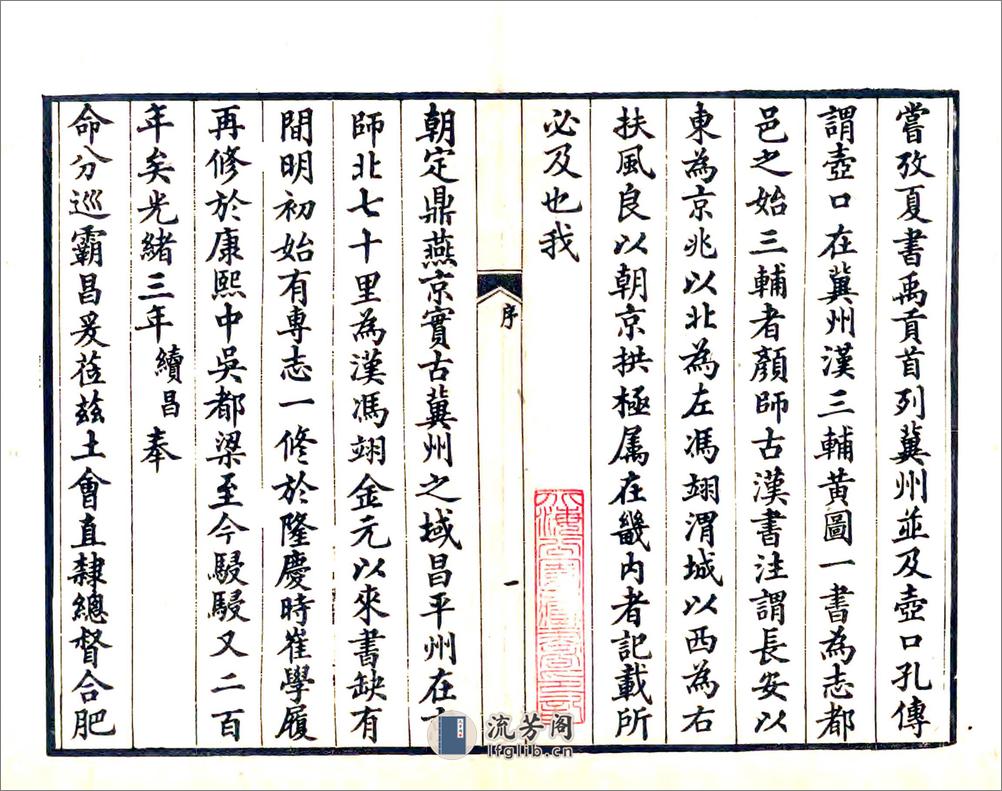 嘗攷夏書禹貢首列冀州並及壺口孔傳
謂壺口在冀州漢三輔黃圖一書為志都
邑之始三輔者顏師古漢書注謂長安以
東為京兆以北為左馮翊渭城以西為右
扶風良以朝京拱極属在畿内者記載所
必及也我
序
一
朝定鼎燕京實古冀州之域昌平州在
師北七十里為漢馮翊金元以來書缺有
間明初始有專志一修於隆慶時崔學履
再修於康熙中吳都梁至今駸駸又二百
年矣光緒三年續昌奉
命分巡霸昌爰莅兹土會直隸總督合肥
流芳阁
lfglib.cn